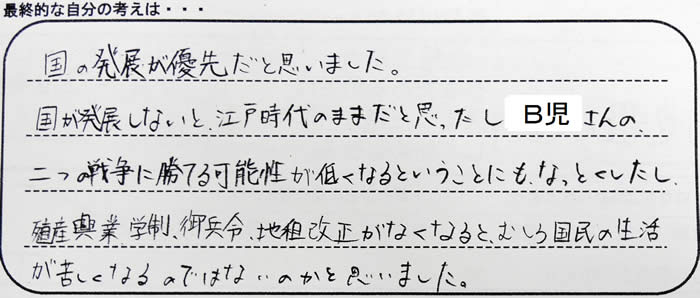 最終的な自分の考えは・・・
国の発展が優先だと思いました。
国が発展しないと、江戸時代のままだと思ったし B児 さんの、
二つの戦争に勝てる可能性が低くなるということにも、なっとくしたし、
殖産興業、学制、御兵令、地租改正がなくなると、むしろ国民の生活
が苦しくなるのではないのかと思いました。